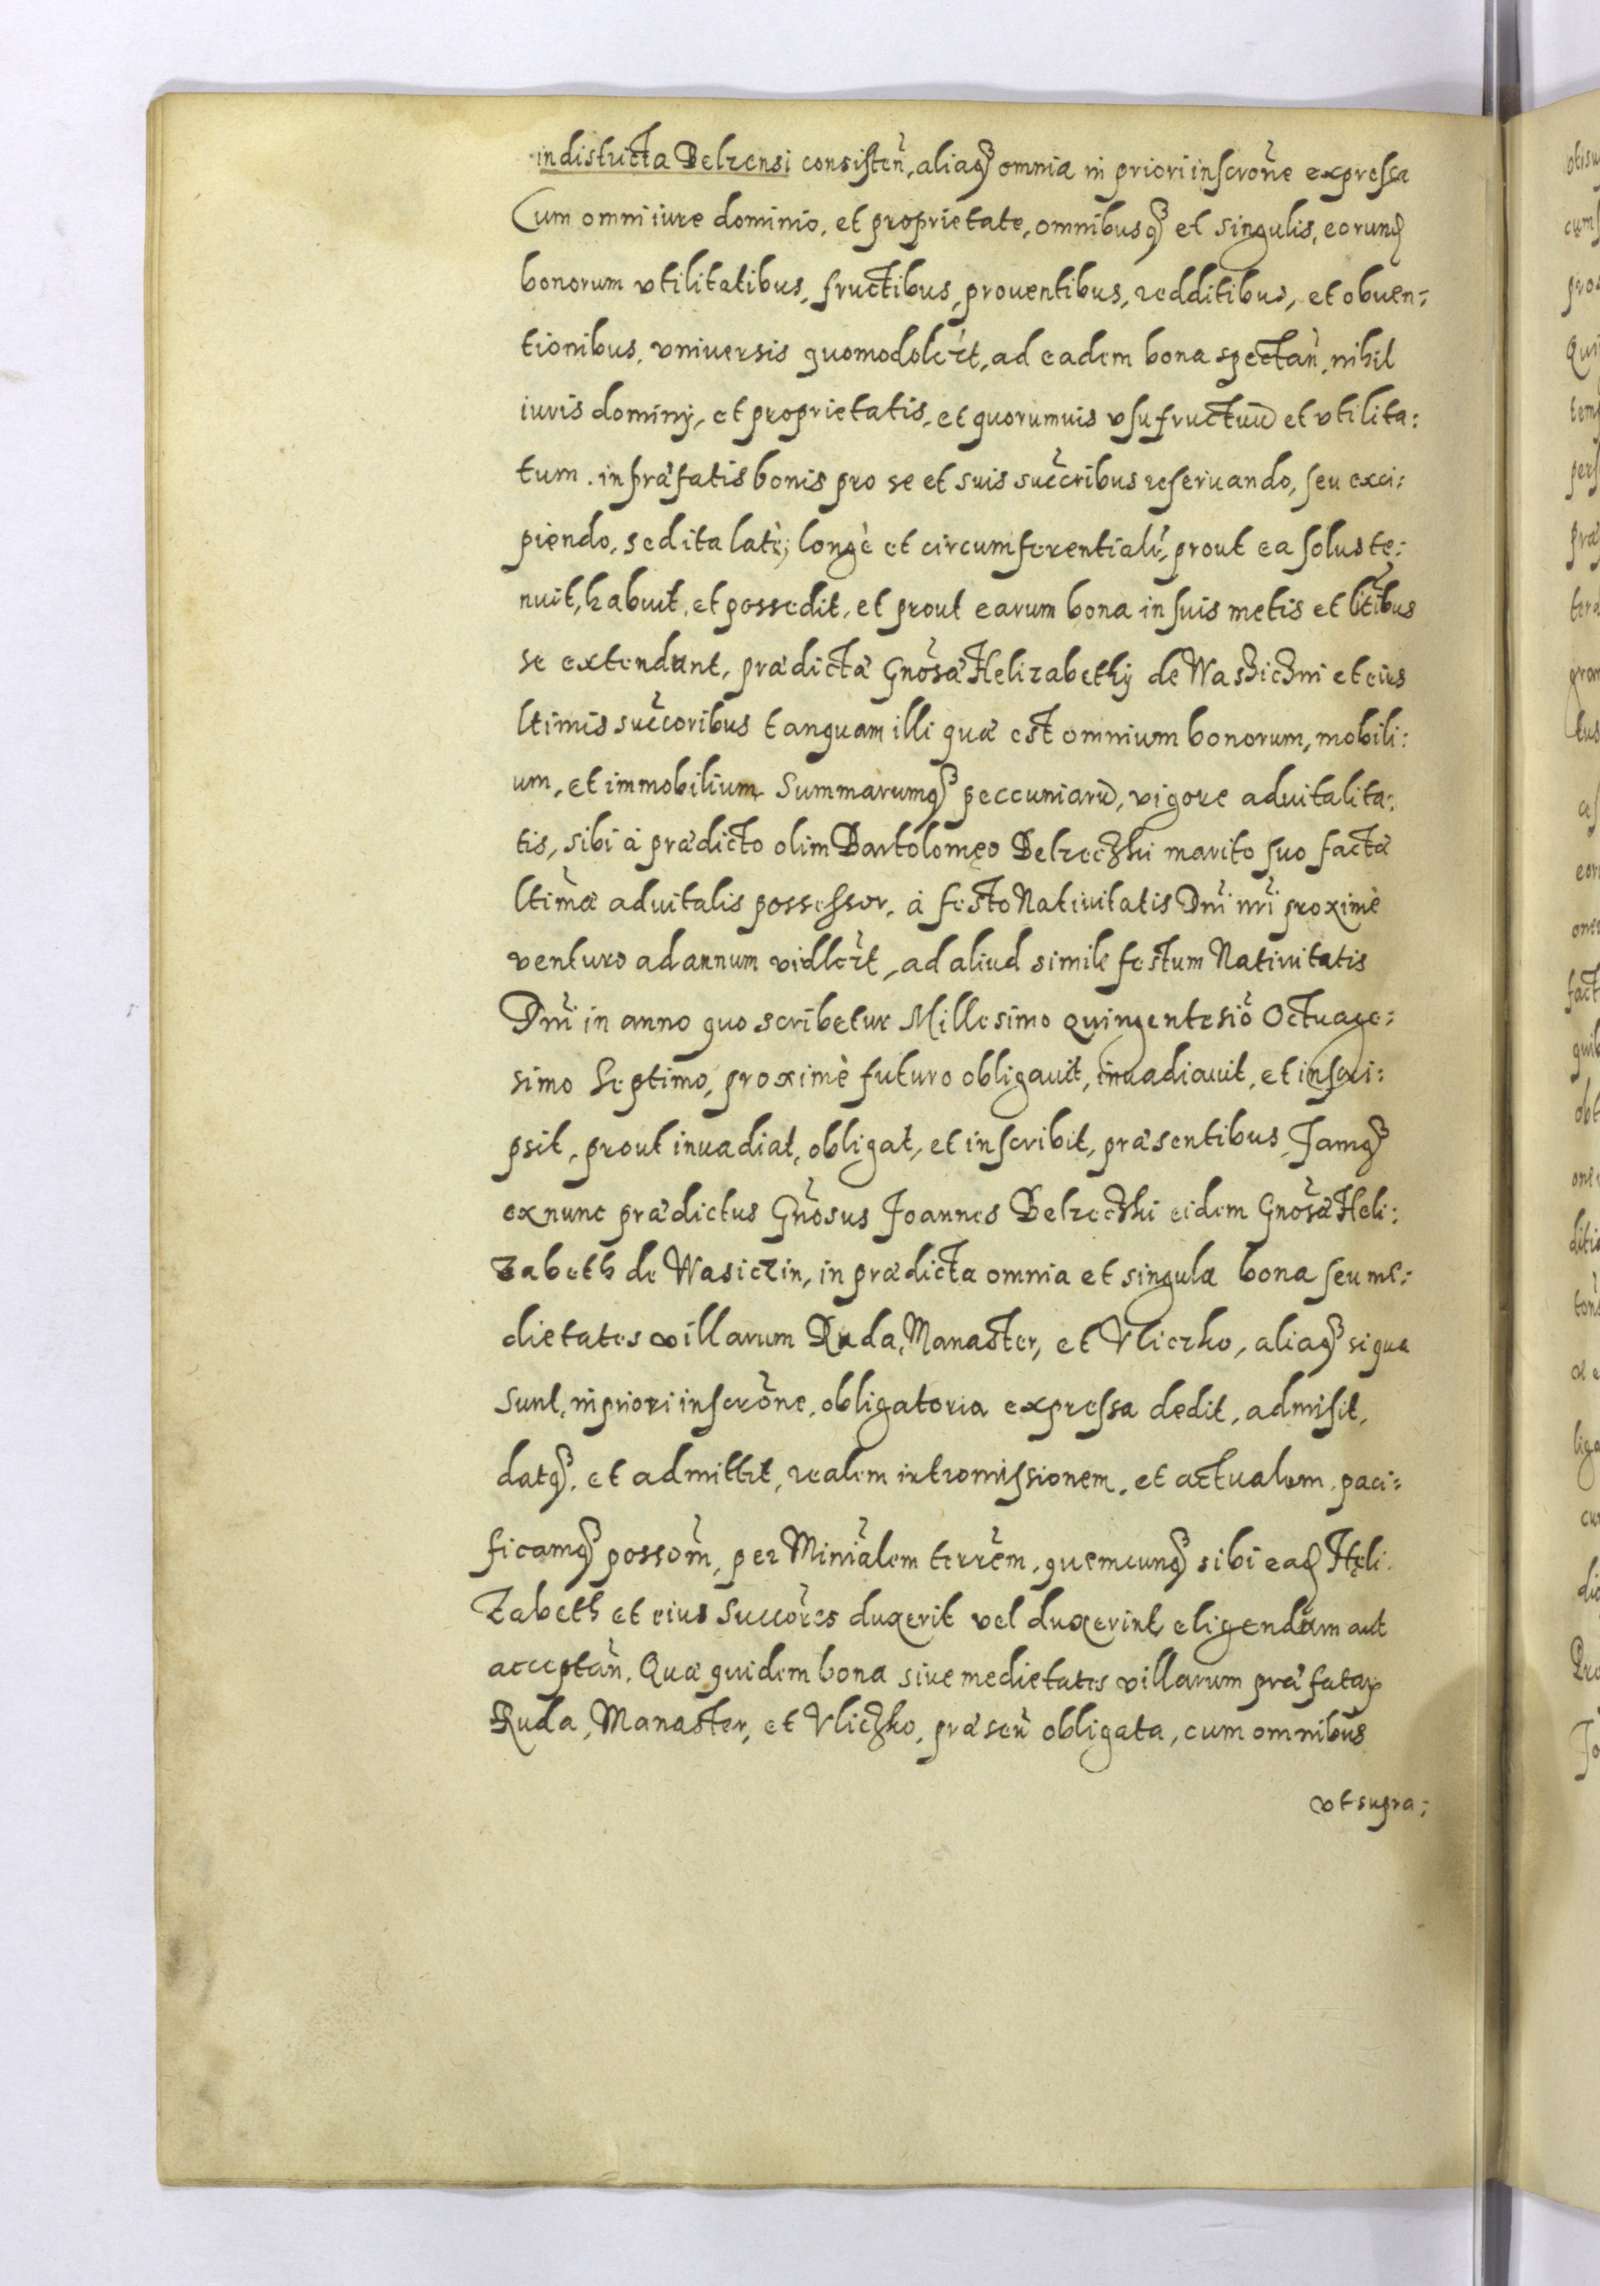 in districta Belzensi consisten̄, aliaq₃ omnia in priori inscrōne expressa
Cum omni iure dominio, et proprietate, omnibusq₃ et singulis, eorunq₃
bonorum vtilitatibus, fructibus, prouentibus, redditibus, et obuen:
tionibus, vniuersis quomodolƺt, ad eadem bona spectan̄, nihil
iuris dominÿ, et proprietatis, et quorumuis vsufructuū et vtilita:
tum. in præfatis bonis pro se et suis succribus reseruando, seu exci:
piendo, sed ita latè, longè et circumferentialr, prout ea solus te:
nuit, habuit, et possedit, et prout earum bona in suis metis et litibus
se extendunt, prædictæ Gnosæ Helizabethy de Wasziczni et eius
ltimis succoribus tanquam illi quæ est omnium bonorum, mobili:
um, et immobilium Summarumq₃ peccuniarū, vigore aduitalita:
tis, sibi à prædicto olim Bartolomęo Belzeczki marito suo factæ
ltimæ aduitalis possessor, à festo Natiuitatis Dni nri proximè
venturo ad annum vidlƺt, ad aliud simile festum Natiuitatis
Dni in anno quo scribetur Millesimo quingentesio Octuage:
simo Septimo, proximè futuro obligauit, inuadiauit, et inscri:
psit, prout inuadiat, obligat, et inscribit, præsentibus, Jamq₃
ex nunc prædictus Gnosus Joannes Belzeczki eidem Gnosæ Heli:
zabeth de Wasiczin, in prædicta omnia et singula bona seu me:
dietates villarum Ruda, Manaster, et Vliczko, aliaq₃ si qua
sunt, in priori inscrōne, obligatoria expressa dedit, admisit,
datq₃, et admittit, realem intromissionem, et actualem, paci:
ficamq₃ possom̄, per Minialem terrem, quemcunq₃ sibi eaq₃ Hęli:
zabeth et eius Succores duxerit vel duxerint eligendum aut
acceptan̄. Quæ quidem bona siue medietates villarum præfatarꝝ
Ruda, Manaster, et Vliczko, præsen̄ obligata, cum omnibus
vt supra: